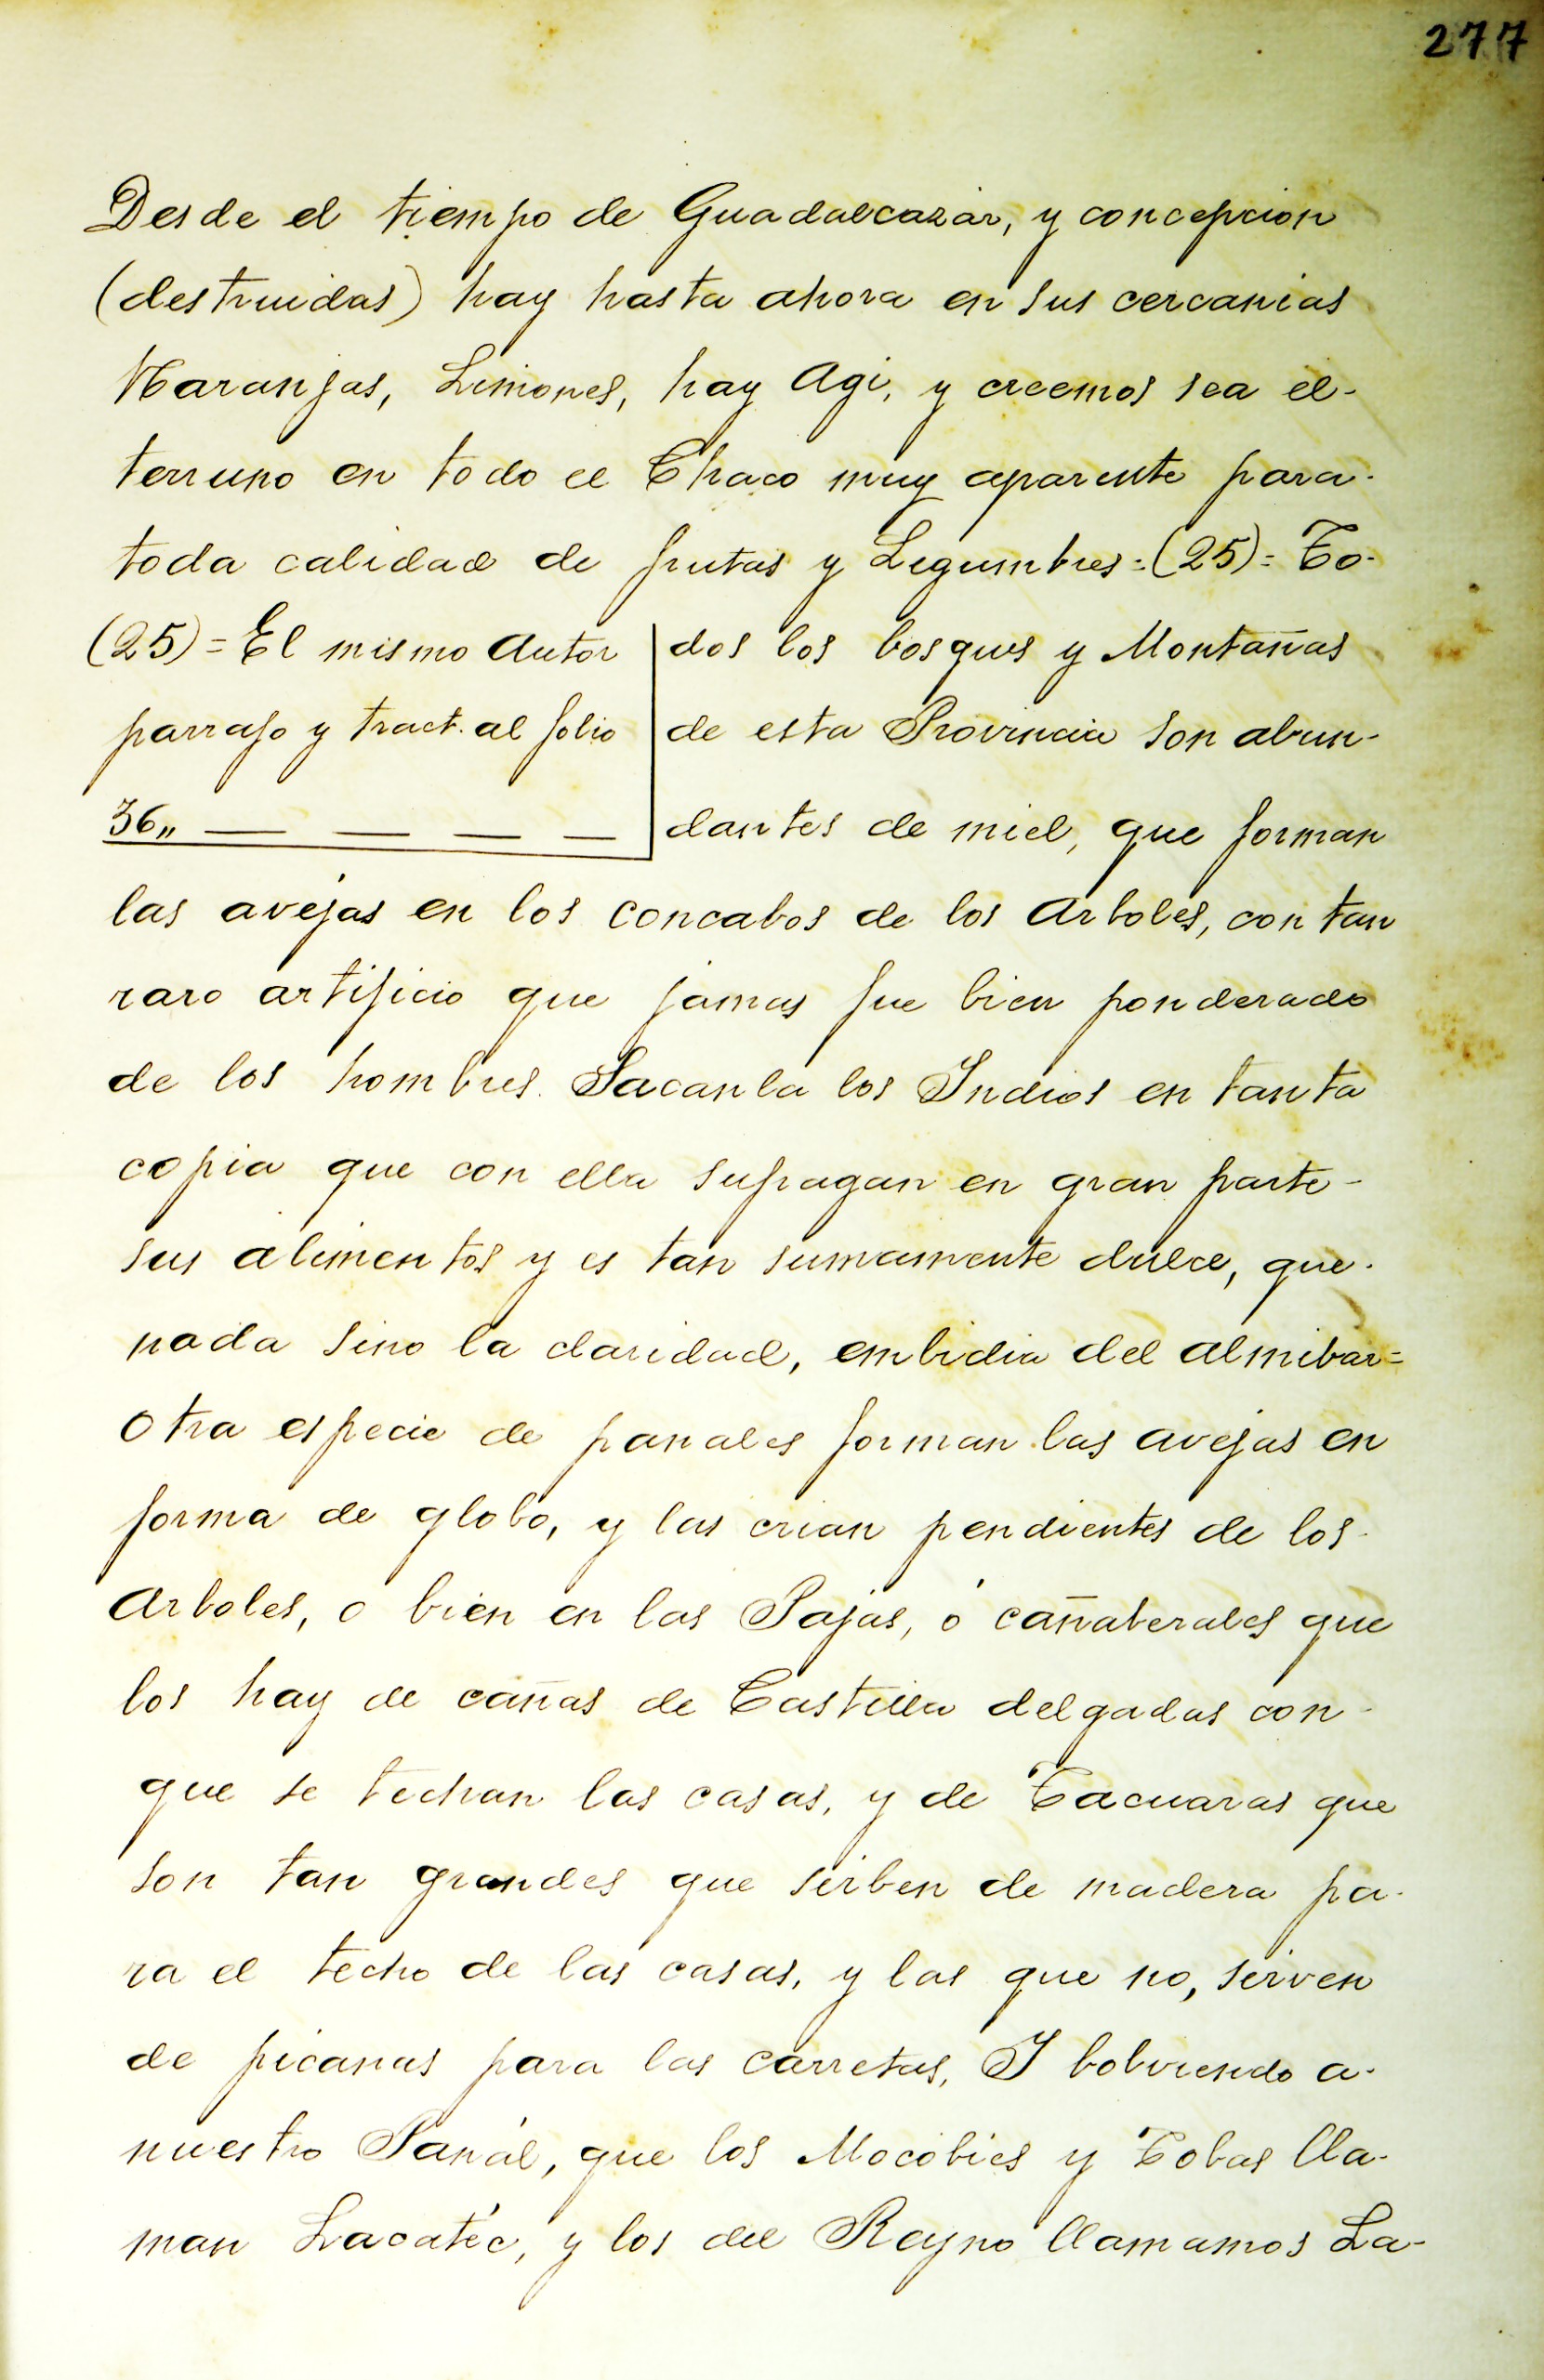 277
Desde el tiempo de Guadalcazar, y concepcion
(destruidas) hay hasta ahora en sus cercanias
Naranjas, Limones, hay Agi, y creemos sea el-
terruno en todo el Chaco muy aparente para-
toda calidad de frutas y Legumbres=(25)= To-
(25)= El mismo Autor
parrafo y tract. al folio
36,, — — — —
dos los bosques y Montañas
de esta Provincia son abun-
dantes de miel, que forman
las avejas en los concabos de los Arboles, con tan
raro artificio que jamas fue bien ponderado
de los hombres. Sacanla los Indios en tanta
copia que con ella sufragan en gran parte-
sus alimentos y es tan sumamente dulce, que-
nada sino la claridad, embidia del almibar=
Otra especie de panales forman las avejas en
forma de globo, y las crian pendientes de los-
Arboles, o bien en las Pajas, ó cañaberales que
los hay de cañas de Castilla delgadas con-
que se techan las casas, y de Tacuaras que
son tan grandes que sirben de madera pa-
ra el techo de las casas, y las que no, sirven
de picanas para las carretas, I bolviendo a-
nuestro Panál, que los Mocobies y Tobas lla-
man Lacatéc, y los del Reyno llamamos La-